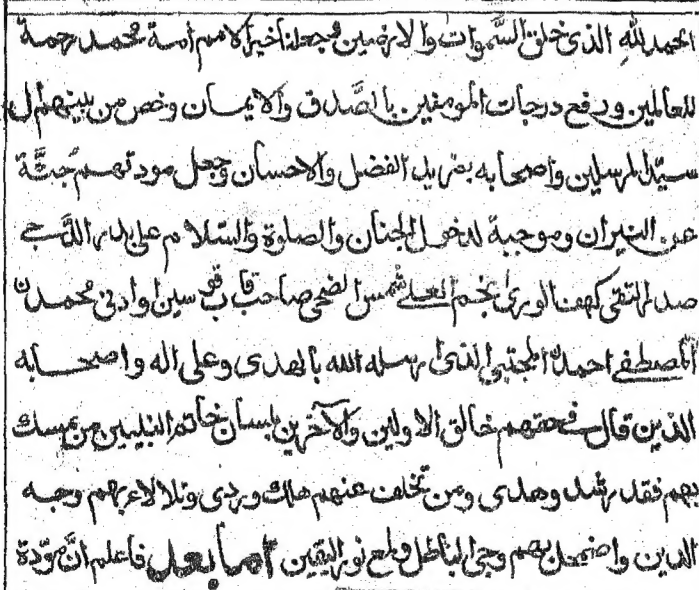 الحمد لله الذی خلق السَّمٰوات والارضین وجعلنا خیر الامم امة محمد رحمة
للعالمین ورفع درجات المومنین بالصَّدق والایمان وخص من بینهم ال
سیّد المرسلین واصحابه بمزید الفضل والاحسان وجعل مودتهم جنَّة
عن النیران وموجبة لدخول الجنان والصلوة والسّلام علی بدر الدُّجے
صدر التقی کهف الوری نجم العلے شمس الضحی صاحب قاب قوسین او ادنی محمدن
المصطفے احمدن المجتبی الذی ارسله الله بالهدی وعلی اله واصحابه
الذین قال فے حقهم خالق الاولین والآخرین بلسان خاتم النبیین من تمسك
بهم فقد رشد وهدی ومن تخلف عنهم هلك وردی وتلالاء بهم وجه
الدین واضمحل بهم وجی الباطل ولمع نور الیقین اما بعد فاعلم انَّ مؤدة